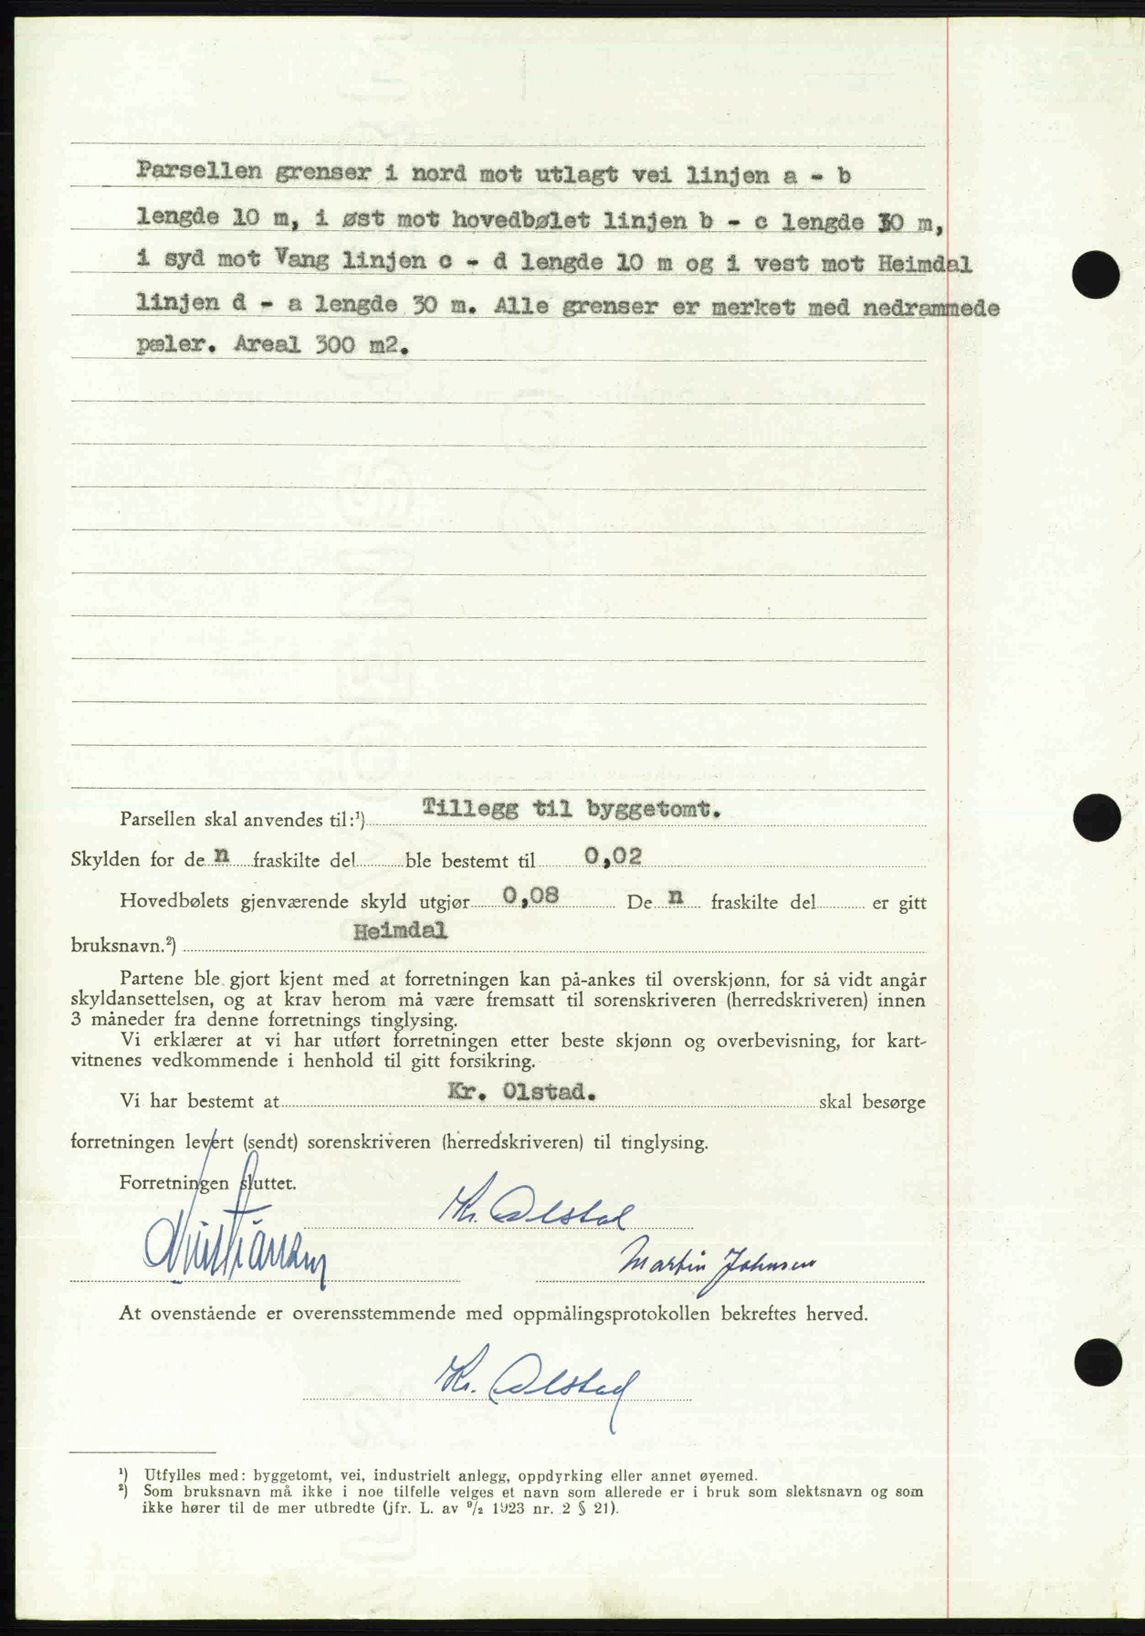 Parsellen grenser i nord mot utlagt vei linjen a - b
lengde 10 m, i øst mot hovedbølet linjen b - c lengde 30 m,
i syd mot Vang linjen c - d lengde 10 m og i vest mot Heimdal
linjen d - a lengde 30 m. Alle grenser er merket med nedrammede
pæler. Areal 300 m2.
Parsellen skal anvendes til:¹) Tillegg til byggetomt.
Skylden for de n fraskilte del ble bestemt til 0,02
Hovedbølets gjenværende skyld utgjør 0,08 De n fraskilte del er gitt
bruksnavn.²) Heimdal
Partene ble gjort kjent med at forretningen kan på-ankes til overskjønn, for så vidt angår
skyldansettelsen, og at krav herom må være fremsatt til sorenskriveren (herredskriveren) innen
3 måneder fra denne forretnings tinglysing.
Vi erklærer at vi har utført forretningen etter beste skjønn og overbevisning, for kart-
vitnenes vedkommende i henhold til gitt forsikring.
Vi har bestemt at Kr. Olstad. skal besørge
forretningen levert (sendt) sorenskriveren (herredskriveren) til tinglysing.
Forretningen sluttet.
Kr. Olstad
Kristiansen Martin Johnsen
At ovenstående er overensstemmende med oppmålingsprotokollen bekreftes herved.
Kr. Olstad
¹) Utfylles med: byggetomt, vei, industrielt anlegg, oppdyrking eller annet øyemed.
²) Som bruksnavn må ikke i noe tilfelle velges et navn som allerede er i bruk som slektsnavn og som
ikke hører til de mer utbredte (jfr. L. av ⁹/₂ 1923 nr. 2 § 21).